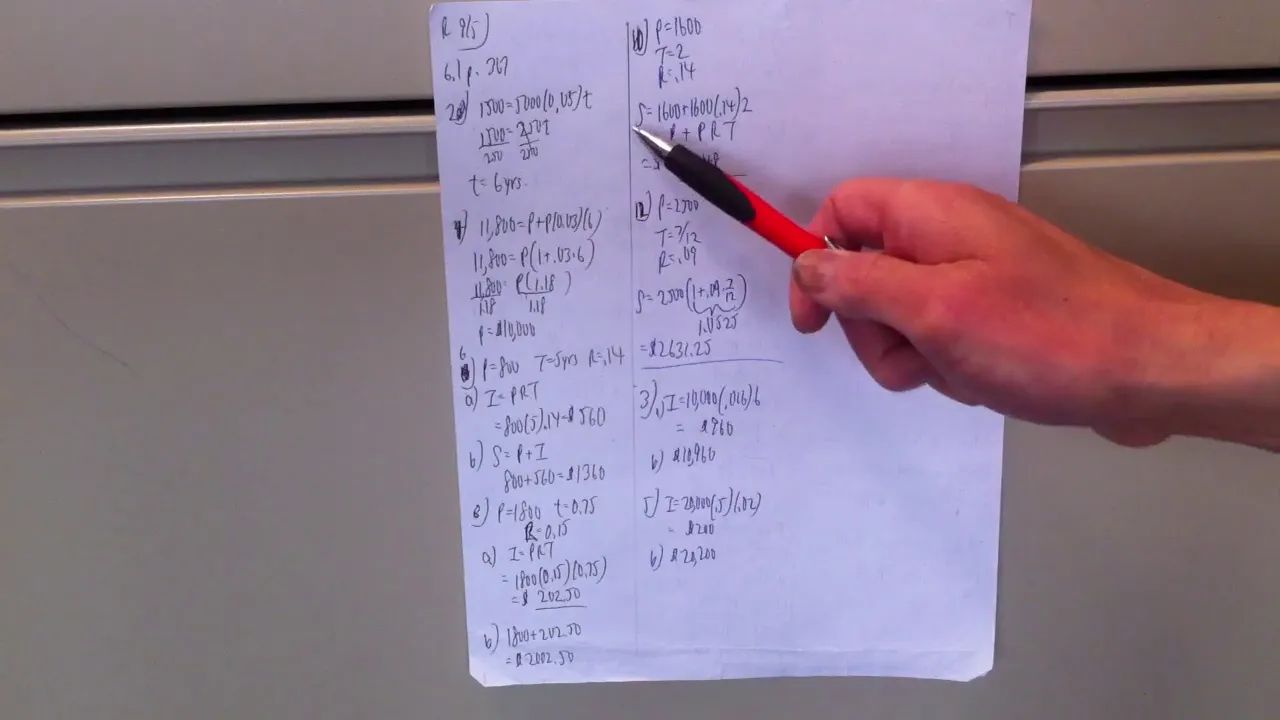 R 9/5
6.1 p. 367
2a) 1500=5000(0.05)t
1500=250t
250 250
t=6yrs.
4) 11,800=P+P(0.03)(6)
11,800=P(1+.03·6)
11,800=P(1.18)
1.18 1.18
P=$10,000
6) P=800 T=5yrs R=.14
a) I=PRT
=800(5).14=$560
b) S=P+I
800+560=$1360
8) P=1800 t=0.75
R=0.15
a) I=PRT
=1800(0.15)(0.75)
=$202.50
b) 1800+202.50
=$2002.50
10) P=1600
T=2
R=.14
S=1600+1600(.14)2
P + P R T
12) P=2500
T=7/12
R=.09
S=2500(1+.09·7/12)
1.0525
=$2631.25
3) I=10,000(.016)6
=$960
b) $10,960
5) I=20,000(.5)(.02)
=$200
b) $20,200